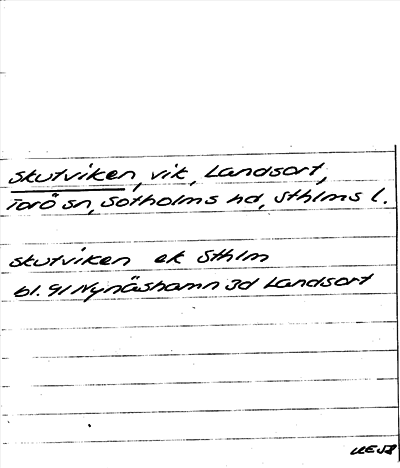 Skutviken, vik, Landsort,
Torö sn, Sotholms hd, Sthlms l.
Skutviken ek Sthlm
bl. 91 Nynäshamn 3d Landsort